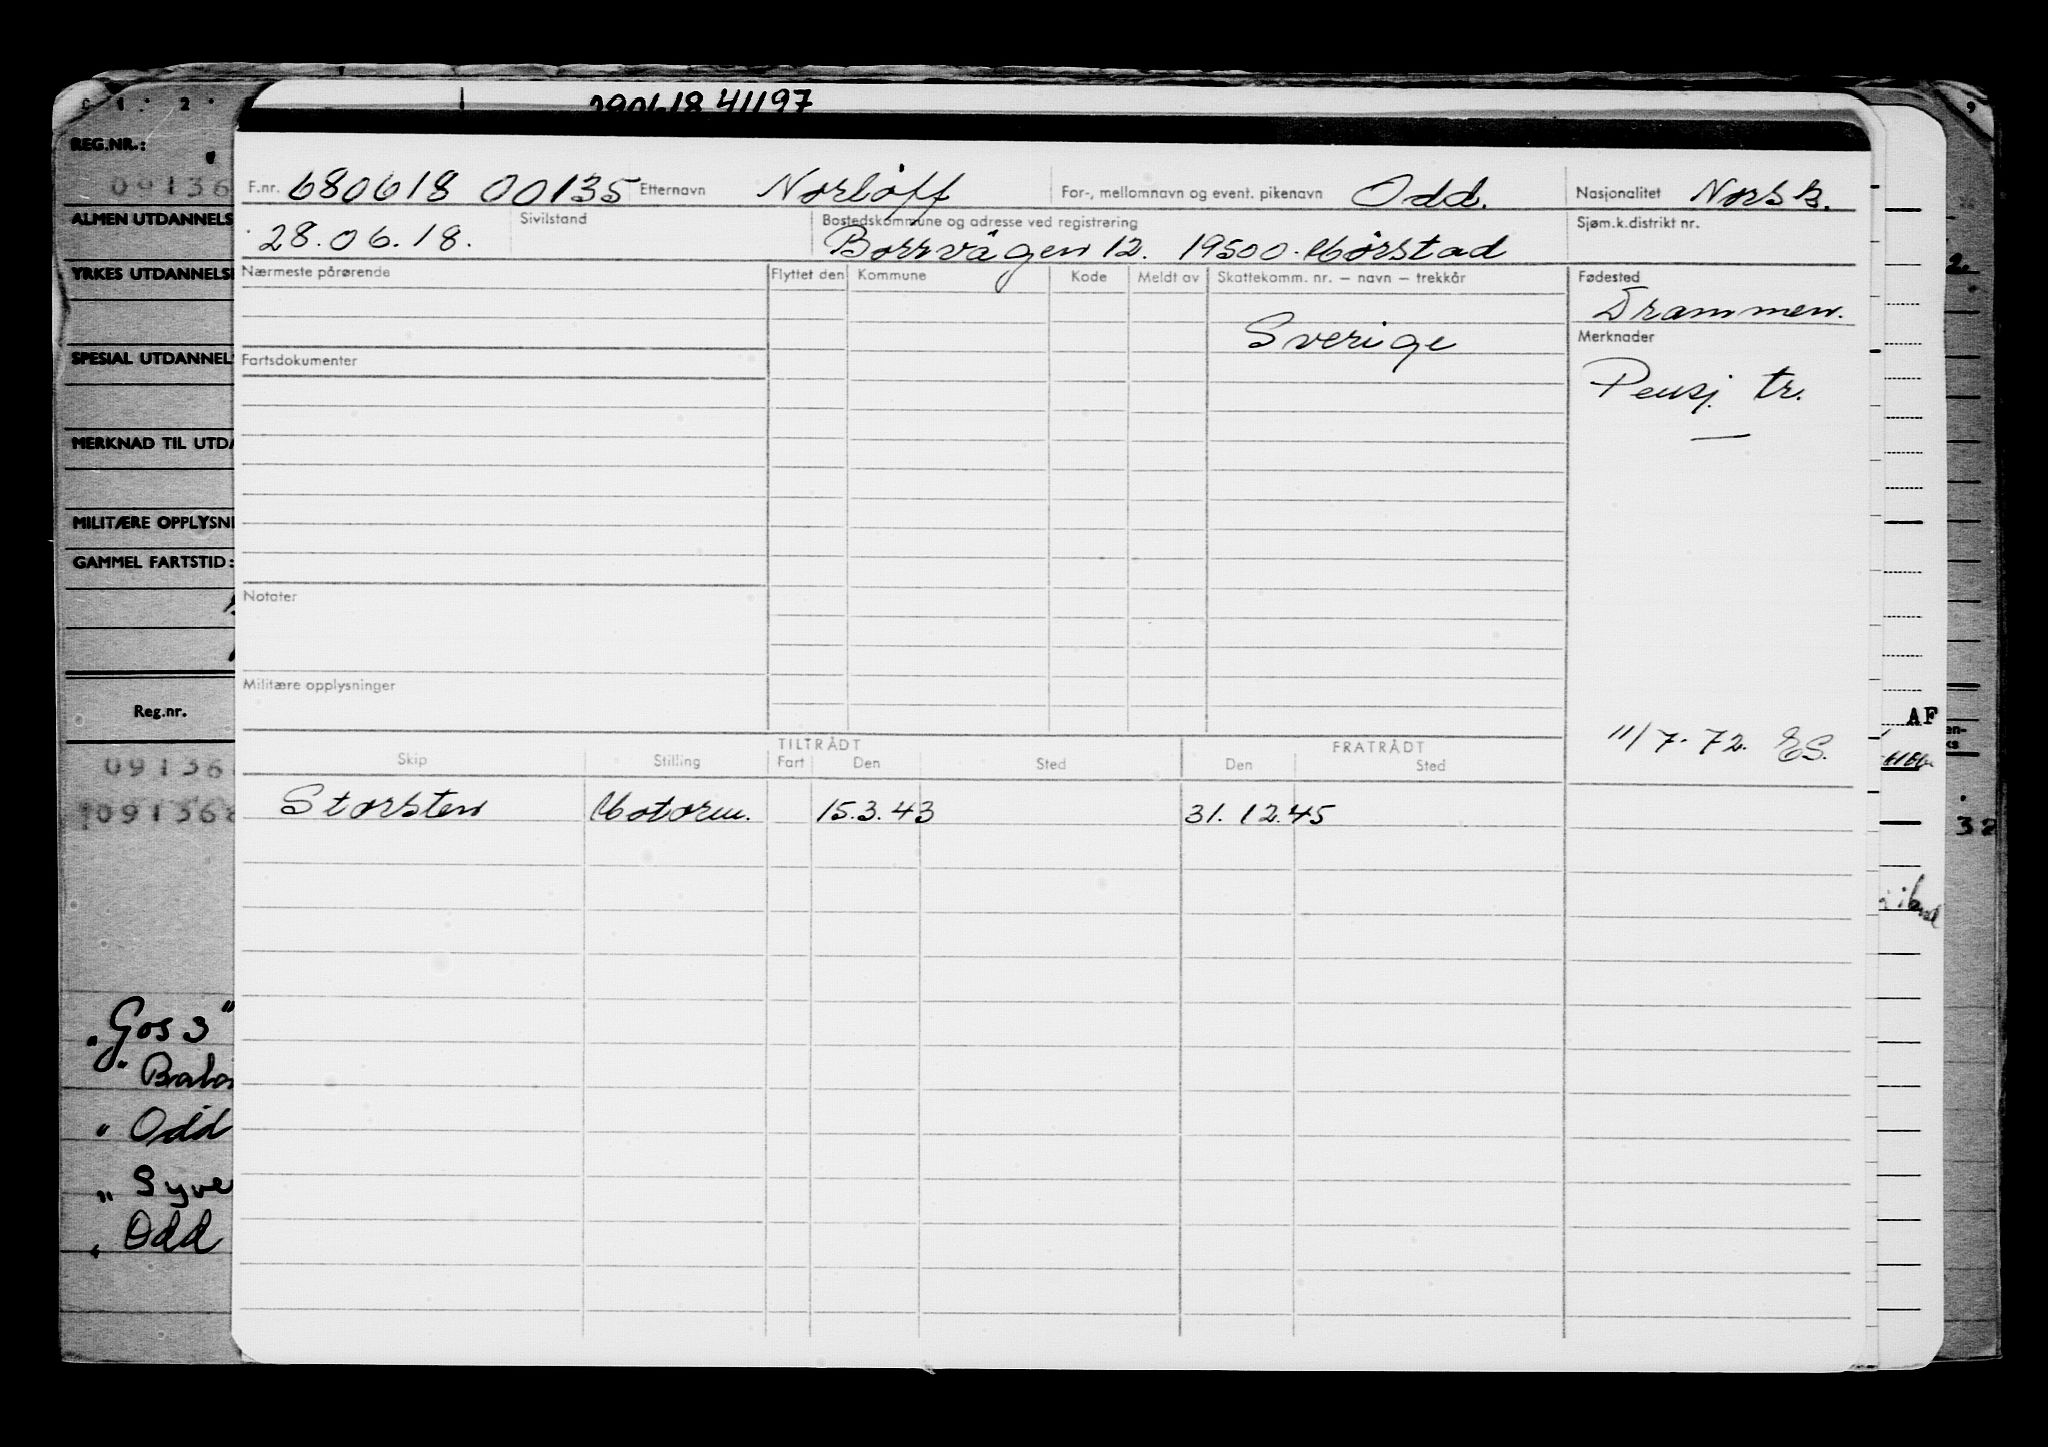 41197
F.nr. 680618 00135 Etternavn Norlöff For-, mellomnavn og event. pikenavn Odd. Nasjonalitet Norsk.
28.06.18. Sivilstand Bostedskommune og adresse ved registrering Borrvägen 12. 19500 Mörstad Sjøm.k.distrikt nr.
Nærmeste pårørende Flyttet den Kommune Kode Meldt av Skattekomm. nr. – navn – trekkår Fødested
Drammen.
Sverige Merknader
Fartsdokumenter
Pensj. tr.
Notater
Militære opplysninger
11/7-72. ES.
TILTRÅDT FRATRÅDT
Skip Stilling Fart Den Sted Den Sted
Storsten Motorm. 15.3.43 31.12.45
REG.NR.:
09136
ALMEN UTDANNELS
YRKES UTDANNELSE
SPESIAL UTDANNEL
MERKNAD TIL UTDA
MILITÆRE OPPLYSNI
GAMMEL FARTSTID:
Reg.nr.
09136
09136
"Goss"
" Odd
" Syve
" Odd
AF
32